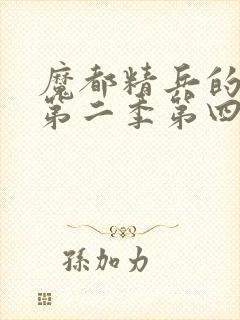 魔都精兵的
第二季第四
孫加力